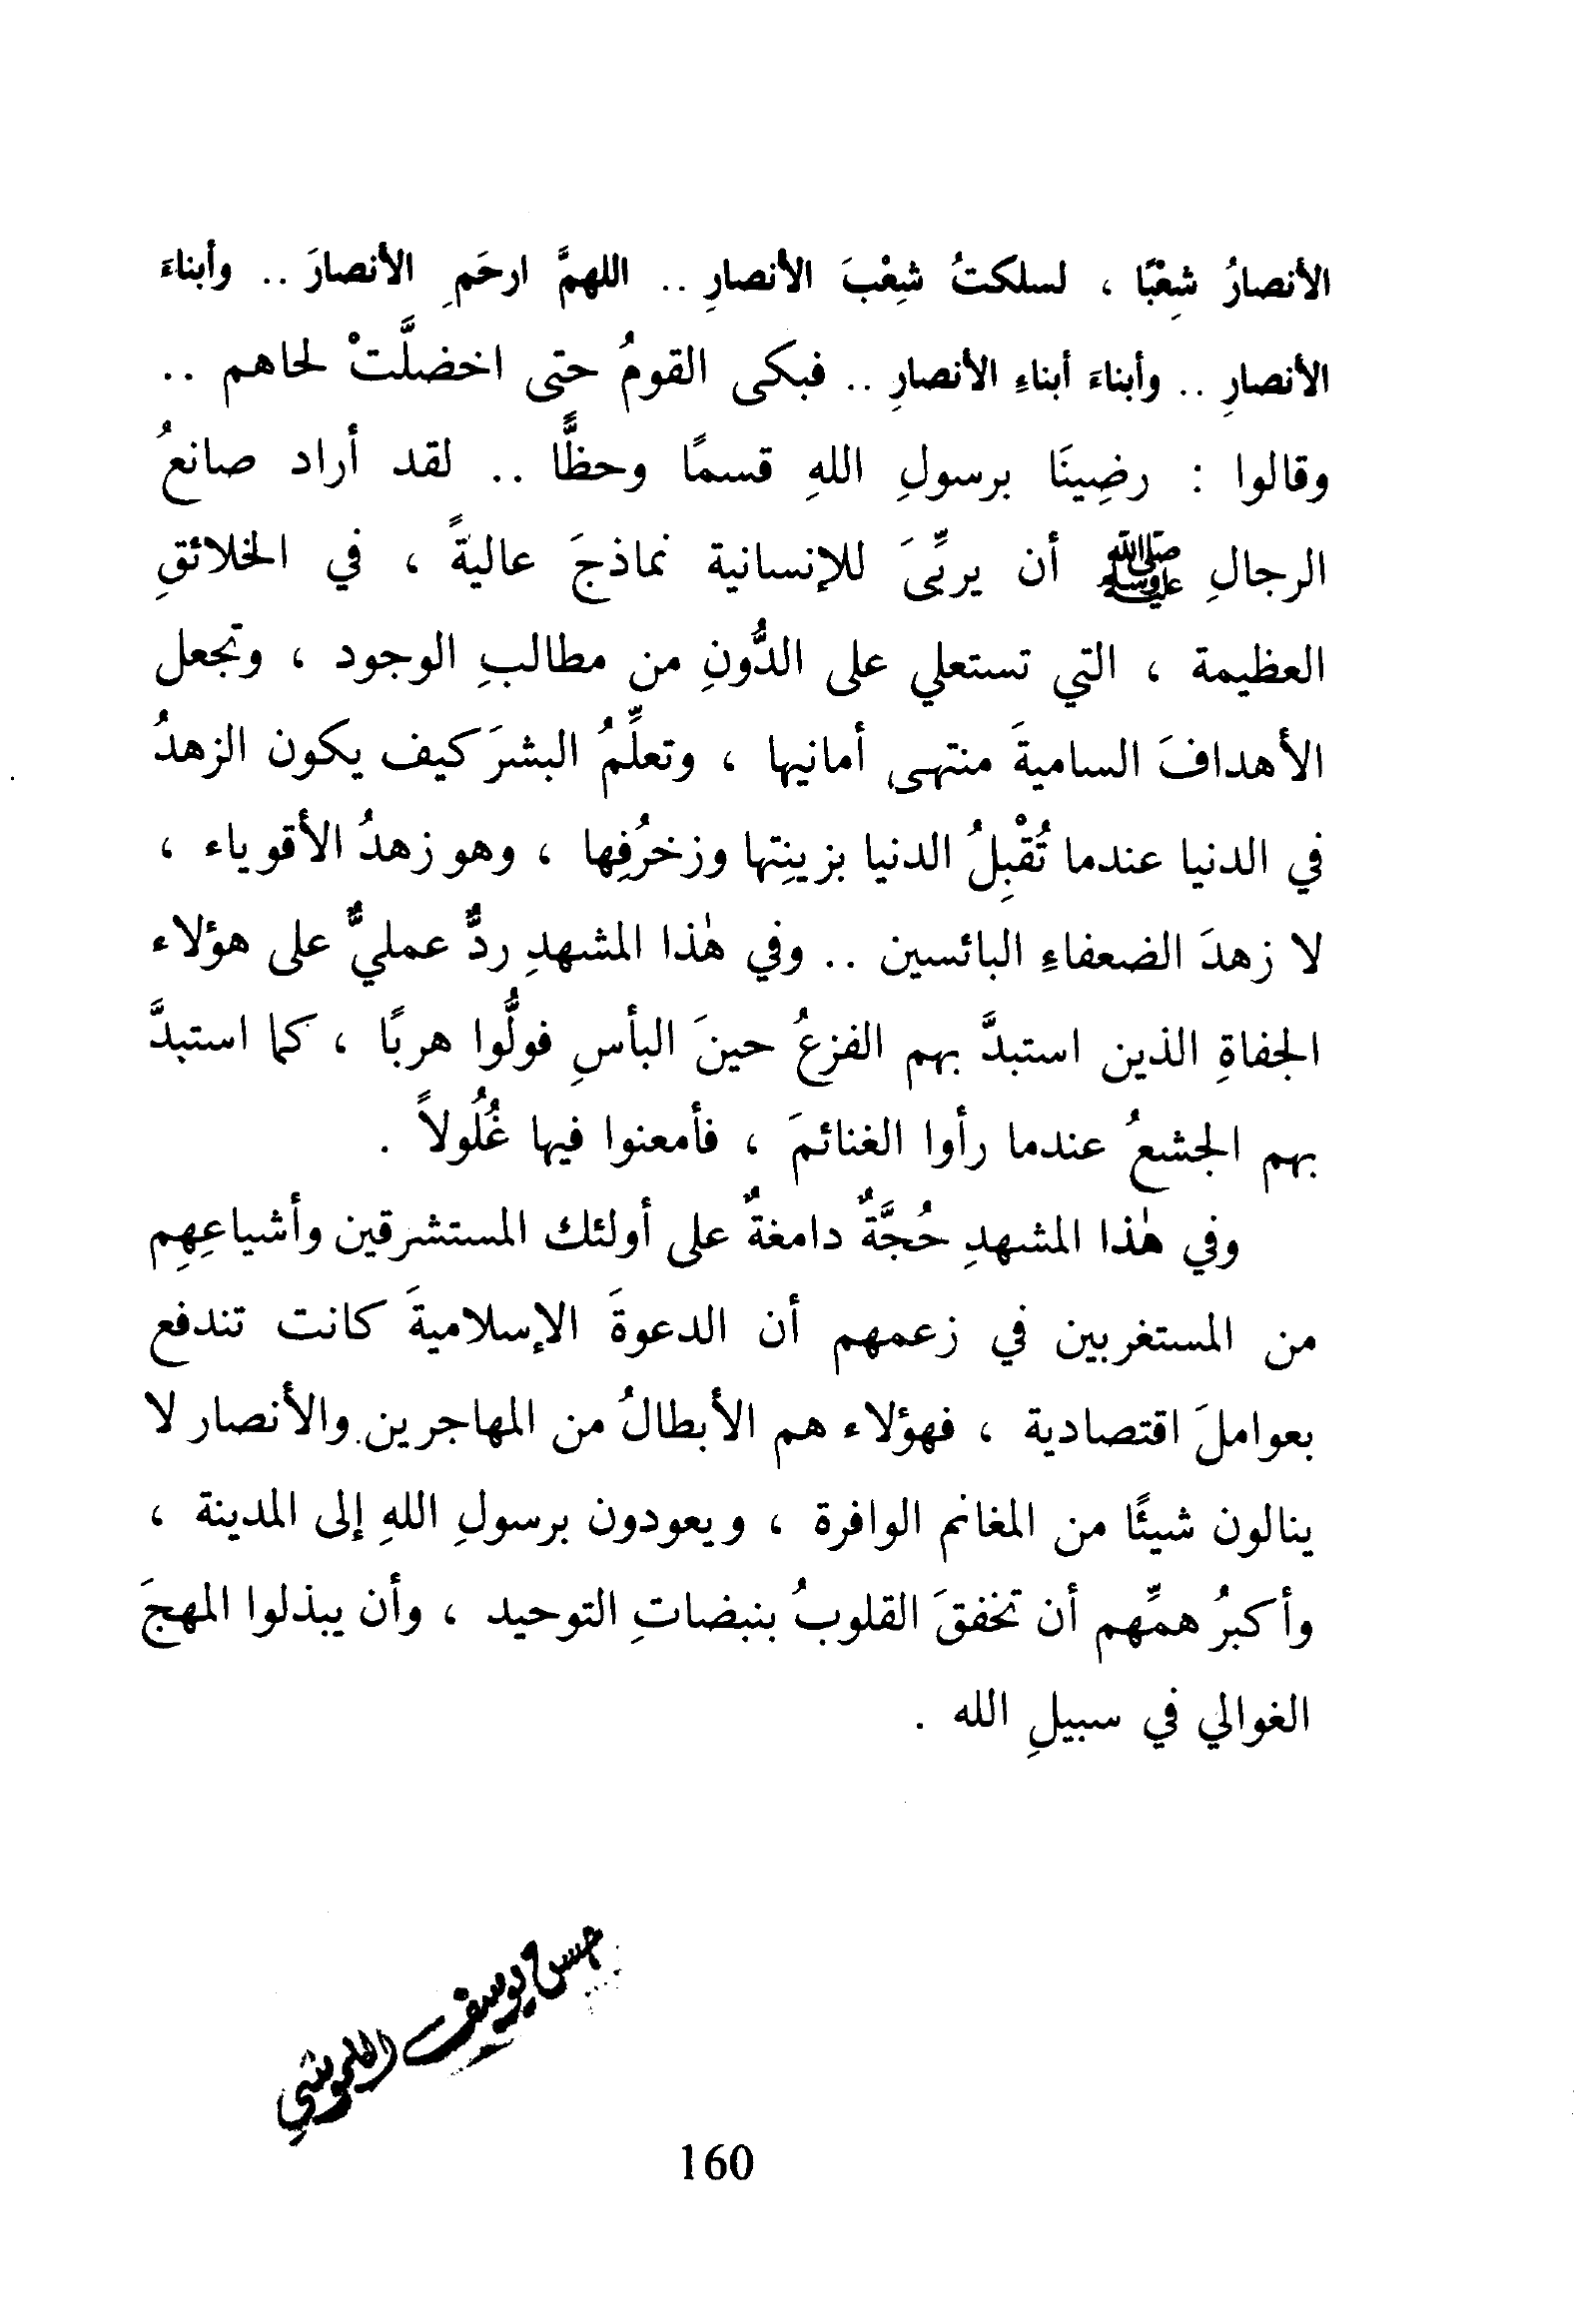 الأنصارُ شِعْبًا ، لسلكتُ شِعْبَ الأنصارِ .. اللهمَّ ارحَمِ الأنصارَ .. وأبناءَ
الأنصارِ .. وأبناءَ أبناءِ الأنصارِ .. فبكى القومُ حتى اخضلَّتْ لحاهم ..
وقالوا : رضِينَا برسولِ اللهِ قسمًا وحظًّا .. لقد أراد صانعُ
الرجالِ ﷺ أن يربِّىَ للإنسانية نماذجَ عاليةً ، في الخلائقِ
العظيمة ، التي تستعلي على الدُّونِ من مطالبِ الوجود ، وتجعل
الأهدافَ الساميةَ منتهى أمانيها ، وتعلِّمُ البشرَ كيف يكون الزهدُ
في الدنيا عندما تُقْبِلُ الدنيا بزينِتها وزخرُفِها ، وهو زهدُ الأقوياء ،
لا زهدَ الضعفاءِ البائسين .. وفي هٰذا المشهدِ ردٌّ عمليٌّ على هؤلاء
الجفاةِ الذين استبدَّ بهم الفزعُ حينَ البأسِ فولُّوا هربًا ، كما استبدَّ
بهم الجشعُ عندما رأوا الغنائمَ ، فأمعنوا فيها غُلُولاً .
وفي هٰذا المشهدِ حُجَّةٌ دامغةٌ على أولئك المستشرقين وأشياعِهِم
من المستغربين في زعمهم أن الدعوةَ الإسلاميةَ كانت تندفع
بعواملَ اقتصادية ، فهؤلاء هم الأبطالُ من المهاجرين والأنصار لا
ينالون شيئًا من المغانم الوافرة ، ويعودون برسولِ اللهِ إلى المدينة ،
وأكبرُ همِّهم أن تخفقَ القلوبُ بنبضاتِ التوحيد ، وأن يبذلوا المهجَ
الغوالي في سبيلِ الله .
حسن يوسف
160